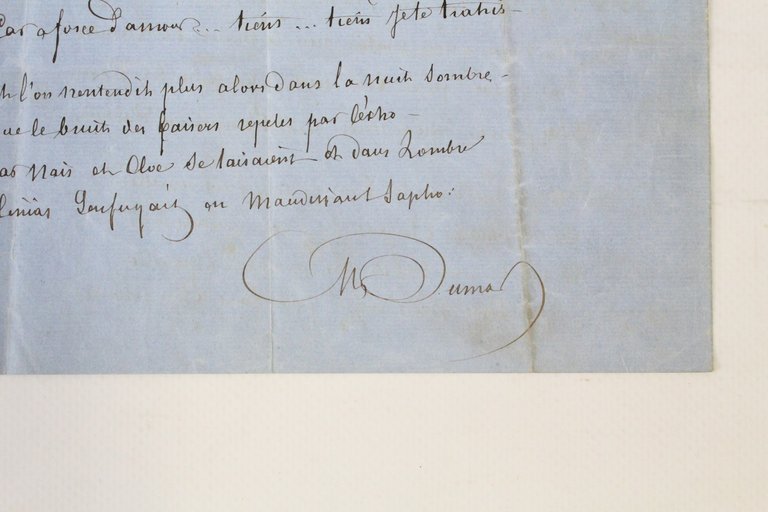 Par a force d'amour... tiens... tiens je te trahis -
l'on n'entendit plus alors dans la nuit sombre -
ue le bruit des baisers repetes par l'écho -
Nais et Cloe se taisaient et dans Lombre
S'enfuyait en Maudissant Sapho.
Dumas